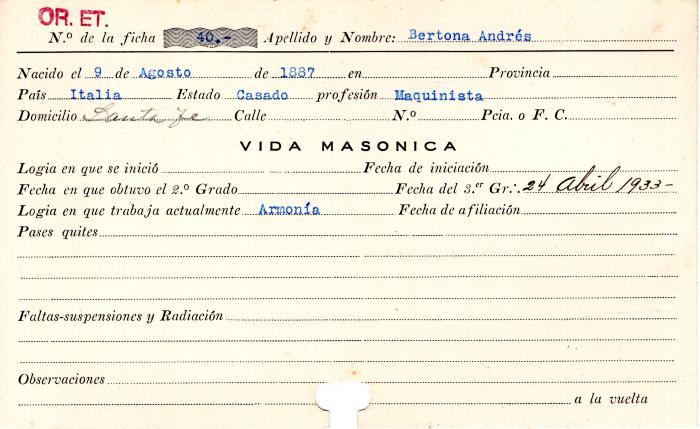 OR. ET.
N.º de la ficha 40.- Apellido y Nombre: Bertona Andrés
Nacido el 9 de Agosto de 1887 en Provincia
País Italia Estado Casado profesión Maquinista
Domicilio Santa Fe Calle N.º Pcia. o F. C.
VIDA MASONICA
Logia en que se inició Fecha de iniciación
Fecha en que obtuvo el 2.º Grado Fecha del 3.er Gr∴ 24 Abril 1933-
Logia en que trabaja actualmente Armonía Fecha de afiliación
Pases quites
Faltas-suspensiones y Radiación
Observaciones
a la vuelta